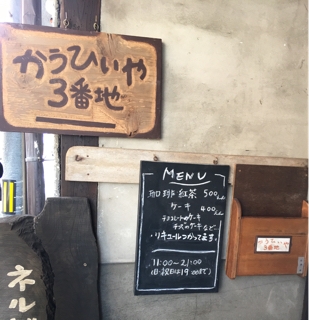 かうひいや
3番地
MENU
珈琲 紅茶 500
ケーキ 400
チョコレートケーキ
チーズケーキなど
・リキュールつかってます。
11:00~21:00
(日・祝日は19:00まで)
かうひいや
3番地
ネル